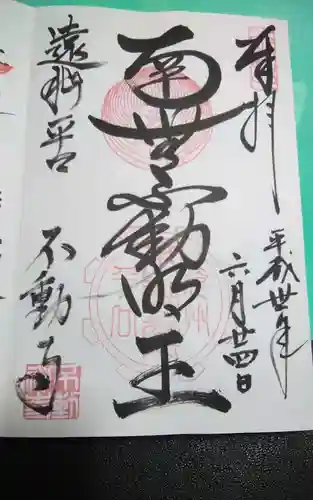 奉拝
平成卅年
六月廿四日
南無不動明王
遠州平口
不動寺